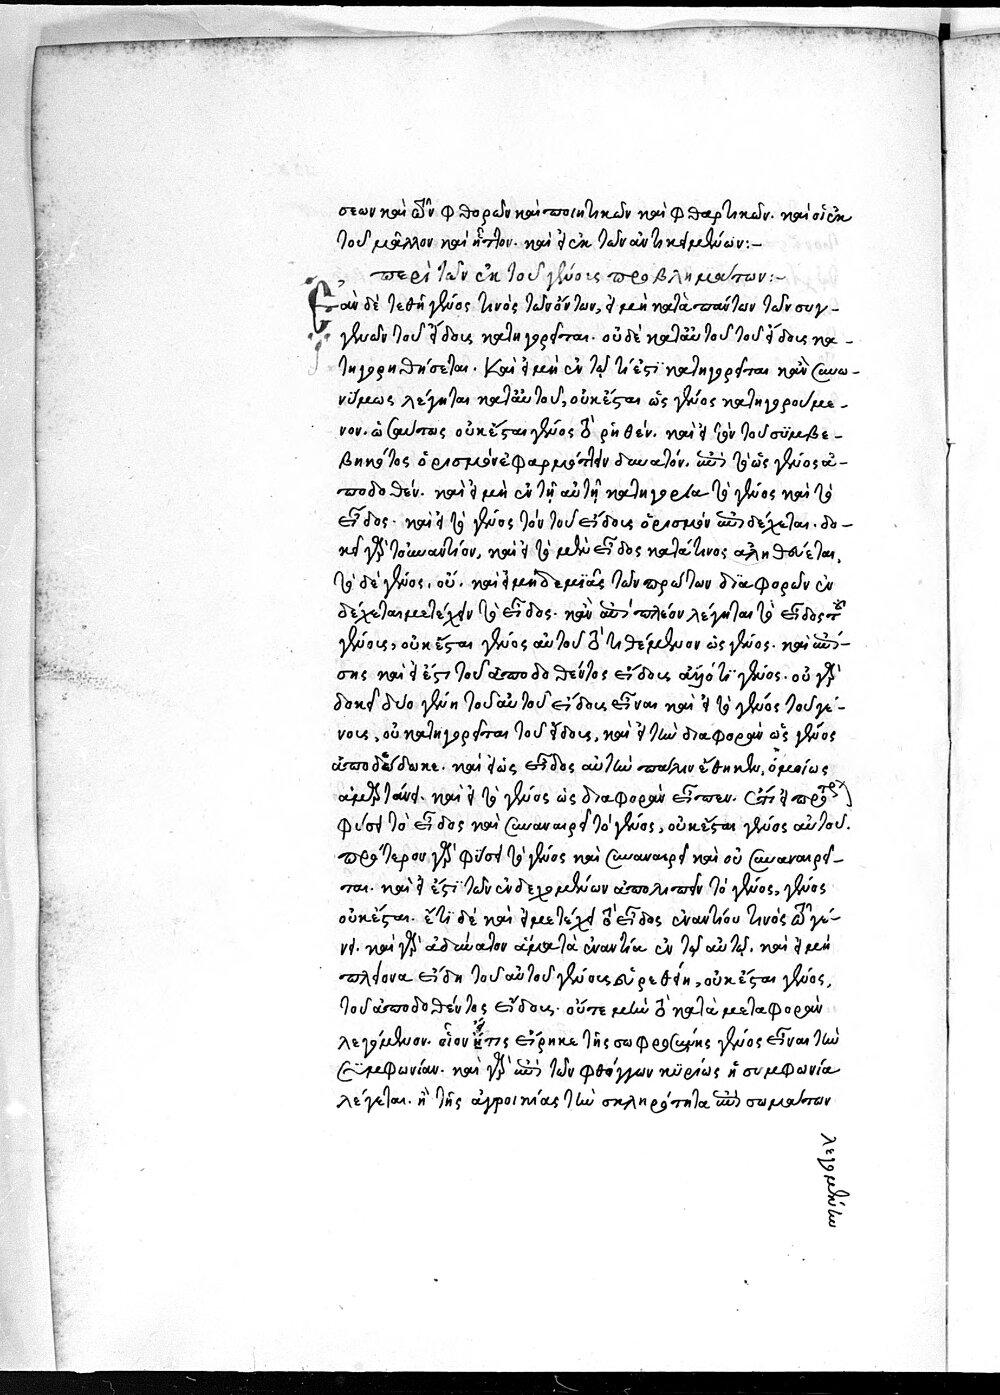 σεων καὶ τῶν φθορῶν καὶ ποιητικῶν καὶ φθαρτικῶν. καὶ οἱ ἐκ
τοῦ μᾶλλον καὶ ἧττον. καὶ εἰ ἐκ τῶν ἀντικειμένων:–
περὶ τῶν ἐκ τοῦ γένους προβλημάτων:–
Ἐὰν δὲ τεθῆ γένος τινὸς τῶν ὄντων, εἰ μὴ κατὰ πάντων τῶν συγ-
γενῶν τοῦ εἴδους κατηγορεῖται. οὐδὲ κατ' αὐτοῦ τοῦ εἴδους κα-
τηγορηθήσεται. Καὶ εἰ μὴ ἐν τῷ τί ἐστι κατηγορεῖται κἂν συνω-
νύμως λέγηται κατ' αὐτοῦ, οὐκ ἔσται ὡς γένος κατηγορούμε-
νον. ὡσαύτως οὐκ ἔσται γένος τὸ ῥηθέν. καὶ εἰ τὸν τοῦ συμβε-
βηκότος ὁρισμὸν ἐφαρμόττειν δυνατόν. ἐπὶ τὸ ὡς γένος ἀ-
ποδοθέν. καὶ εἰ μὴ ἐν τῆ αὐτῆ κατηγορία τὸ γένος καὶ τὸ
εἶδος. καὶ εἰ τὸ γένος τὸν τοῦ εἴδους ὁρισμὸν ἐπιδέχεται. δο-
κεῖ γὰρ τοὐναντίον, καὶ εἰ τὸ μὲν εἶδος κατά τινος ἀληθεύεται,
τὸ δὲ γένος, οὔ. καὶ εἰ μηδεμιᾶς τῶν πρώτων διαφορῶν ἐν
δέχεται μετέχειν τὸ εἶδος. κἂν ἐπὶ πλέον λέγηται τὸ εἶδος τοῦ
γένους, οὐκ ἔσται γένος αὐτοῦ τὸ τιθέμενον ὡς γένος. καὶ ἐπί-
σης καὶ εἰ ἔστι τοῦ ἀποδοθέντος εἴδους ἄλλό τι γένος. οὐ γὰρ
δοκεῖ δύο γένη τοῦ αὐτοῦ εἴδους εἶναι καὶ εἰ τὸ γένος τοῦ γέ-
νους, οὐ κατηγορεῖται τοῦ εἴδους, καὶ εἰ τὴν διαφορὰν ὡς γένος
ἀποδέδωκε. καὶ εἰ ὡς εἶδος αὐτὴν πάλιν ἔθηκεν, ὁμοίως
ἁμαρτάνει. καὶ εἰ τὸ γένος ὡς διαφορὰν εἶπεν. ἔτι εἰ πρότερον
φύσει τὸ εἶδος καὶ συναναιρεῖ τὸ γένος, οὐκ ἔσται γένος αὐτοῦ.
πρότερον γὰρ φύσει τὸ γένος καὶ συναναιρεῖ καὶ οὐ συναναιρεῖ-
ται. καὶ εἰ ἔστι τῶν ἐνδεχομένων ἀπολιπεῖν τὸ γένος, γένος
οὐκ ἔσται. ἔτι δὲ καὶ εἰ μετέχει τὸ εἶδος ἐναντίου τινὸς τῶ γέ-
νει. καὶ γὰρ ἀδύνατον ἅμα τὰ ἐναντία ἐν τῷ αὐτῷ. καὶ εἰ μὴ
πλείονα εἴδη τοῦ αὐτοῦ γένους εὑρεθείη, οὐκ ἔσται γένος,
τοῦ ἀποδοθέντος εἴδους. οὔτε μὴν τὸ κατὰ μεταφορὰν
λεγόμενον. οἷον εἴ τις εἴρηκε τῆς σωφροσύνης γένος εἶναι τὴν
συμφωνίαν. καὶ γὰρ ἐπὶ τῶν φθόγγων κυρίως ἡ συμφωνία
λέγεται. ἢ τῆς ἀγροικίας τὴν σκληρότητα ἐπὶ σωμάτων
λεγομένην